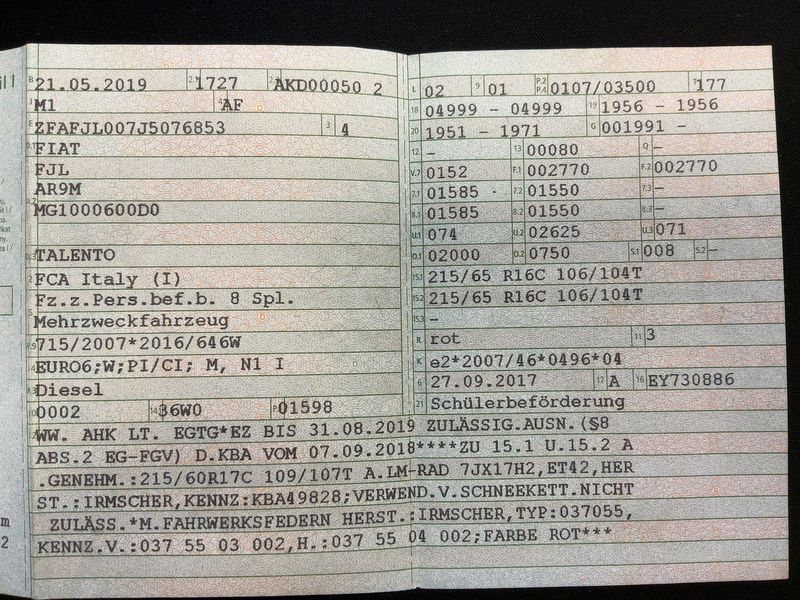 B 21.05.2019 2.1 1727 2.2 AKD00050 2
J M1 4 AF
E ZFAFJL007J5076853 3 4
D.1 FIAT
FJL
D.2 AR9M
MG1000600D0
D.3 TALENTO
2 FCA Italy (I)
5 Fz.z.Pers.bef.b. 8 Spl.
Mehrzweckfahrzeug
V.9 715/2007*2016/646W
14 EURO6;W;PI/CI; M, N1 I
P.3 Diesel
10 0002 14.1 36W0 P.1 01598
L 02 9 01 P.2 P.4 0107/03500 T 177
18 04999 - 04999 19 1956 - 1956
20 1951 - 1971 G 001991 -
12 - 13 00080 Q -
V.7 0152 F.1 002770 F.2 002770
7.1 01585 7.2 01550 7.3 -
8.1 01585 8.2 01550 8.3 -
U.1 074 U.2 02625 U.3 071
O.1 02000 O.2 0750 S.1 008 S.2 -
15.1 215/65 R16C 106/104T
15.2 215/65 R16C 106/104T
15.3 -
R rot 11 3
K e2*2007/46*0496*04
6 27.09.2017 17 A 16 EY730886
21 Schülerbeförderung
WW. AHK LT. EGTG*EZ BIS 31.08.2019 ZULÄSSIG.AUSN.(§8
ABS.2 EG-FGV) D.KBA VOM 07.09.2018****ZU 15.1 U.15.2 A
.GENEHM.:215/60R17C 109/107T A.LM-RAD 7JX17H2,ET42,HER
ST.:IRMSCHER,KENNZ:KBA49828;VERWEND.V.SCHNEEKETT.NICHT
ZULÄSS.*M.FAHRWERKSFEDERN HERST.:IRMSCHER,TYP:037055,
KENNZ.V.:037 55 03 002,H.:037 55 04 002;FARBE ROT***